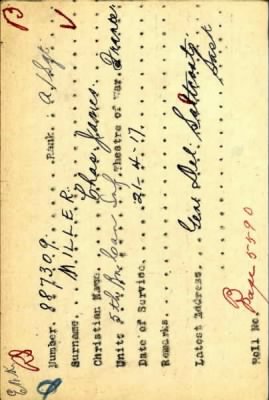 B
Number. 887309. Rank. A/Sgt.
Surname. MILLER. V
Christian Name. Chas James.
Unit. 5th Bn Can Inf Theatre of War. France
Date of Service. 21-4-17.
Remarks.
Latest Address. Genl Del. Saltcoats
Sask
Roll No. B Page 5590